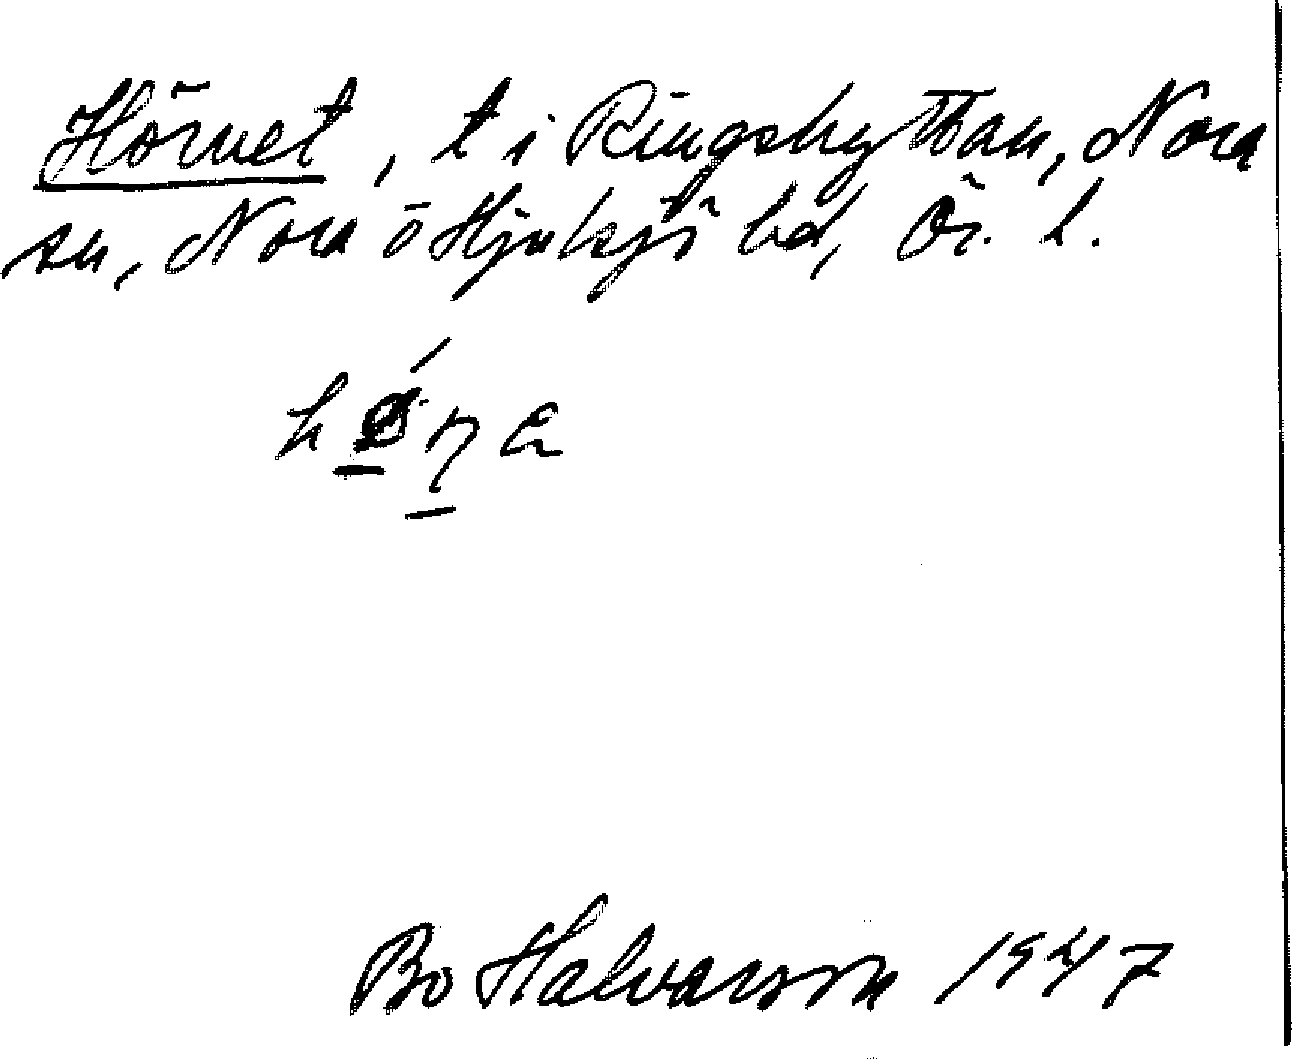 Hörnet, t i Ringshyttan, Nora
sn, Nora o Hjulsjö bd, Ör. l.
Bo Halvarson 1947